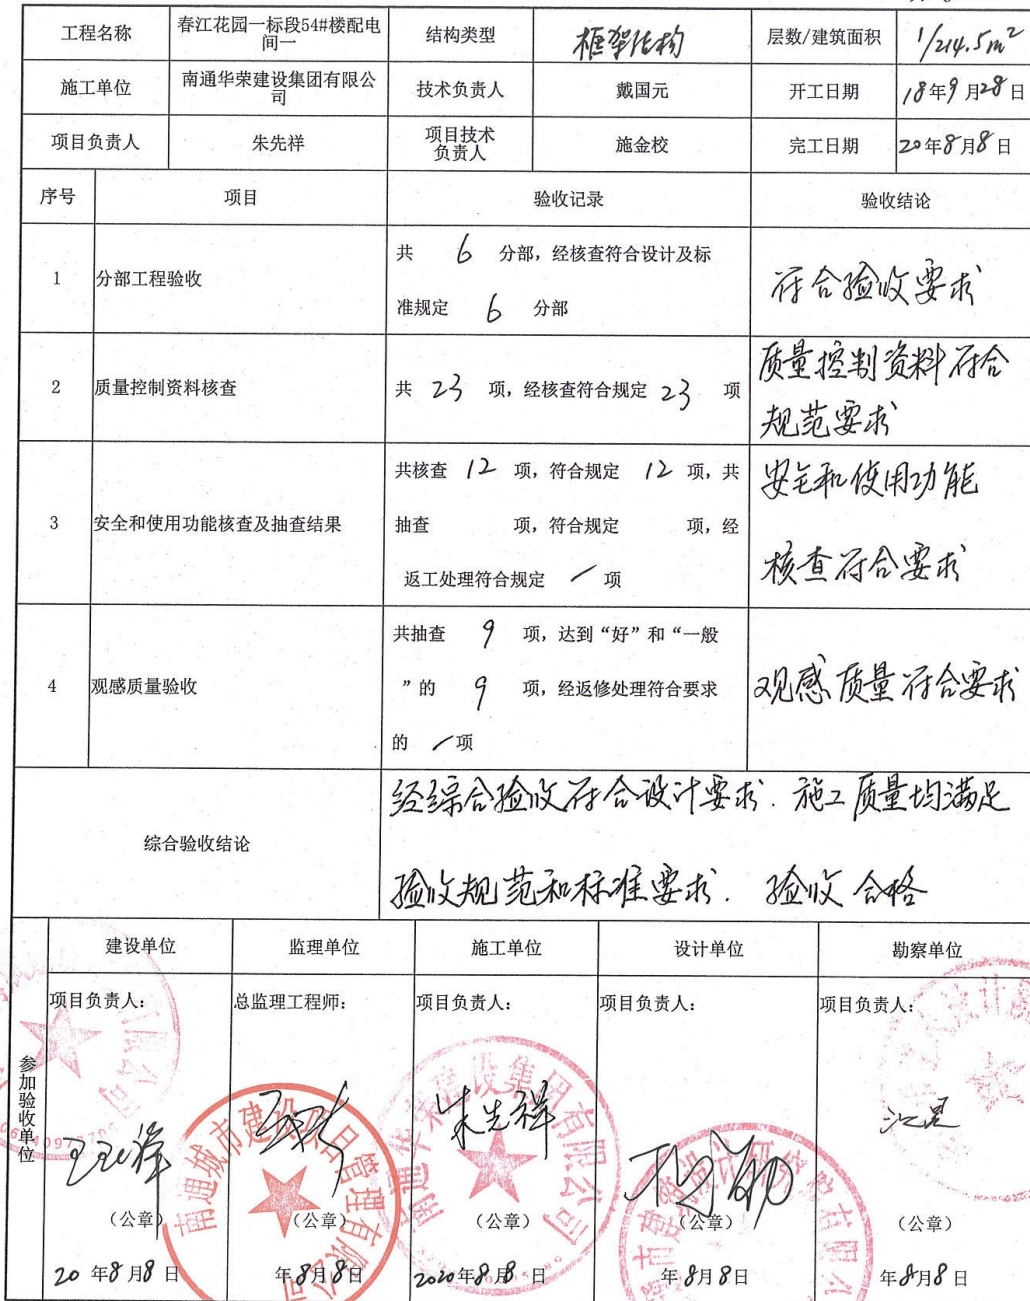 工程名称 春江花园一标段54#楼配电间一 结构类型 框架结构 层数/建筑面积 1/214.5m²
施工单位 南通华荣建设集团有限公司 技术负责人 戴国元 开工日期 18年9月28日
项目负责人 朱先祥 项目技术负责人 施金校 完工日期 20年8月8日
序号 项目 验收记录 验收结论
1 分部工程验收 共 6 分部，经核查符合设计及标
准规定 6 分部
符合验收要求
2 质量控制资料核查 共 23 项，经核查符合规定 23 项
质量控制资料符合
规范要求
3 安全和使用功能核查及抽查结果 共核查 12 项，符合规定 12 项，共
抽查 项，符合规定 项，经
返工处理符合规定 / 项
安全和使用功能
核查符合要求
4 观感质量验收 共抽查 9 项，达到“好”和“一般
”的 9 项，经返修处理符合要求
的 / 项
观感质量符合要求
综合验收结论
经综合验收符合设计要求. 施工质量均满足
验收规范和标准要求. 验收合格
参加验收单位
建设单位 监理单位 施工单位 设计单位 勘察单位
项目负责人： 总监理工程师： 项目负责人： 项目负责人： 项目负责人：
朱先祥
南通城市建设项目管理有限公司
南通华荣建设集团有限公司
（公章） （公章） （公章） （公章） （公章）
20年8月8日 年8月8日 2020年8月8日 年8月8日 年8月8日